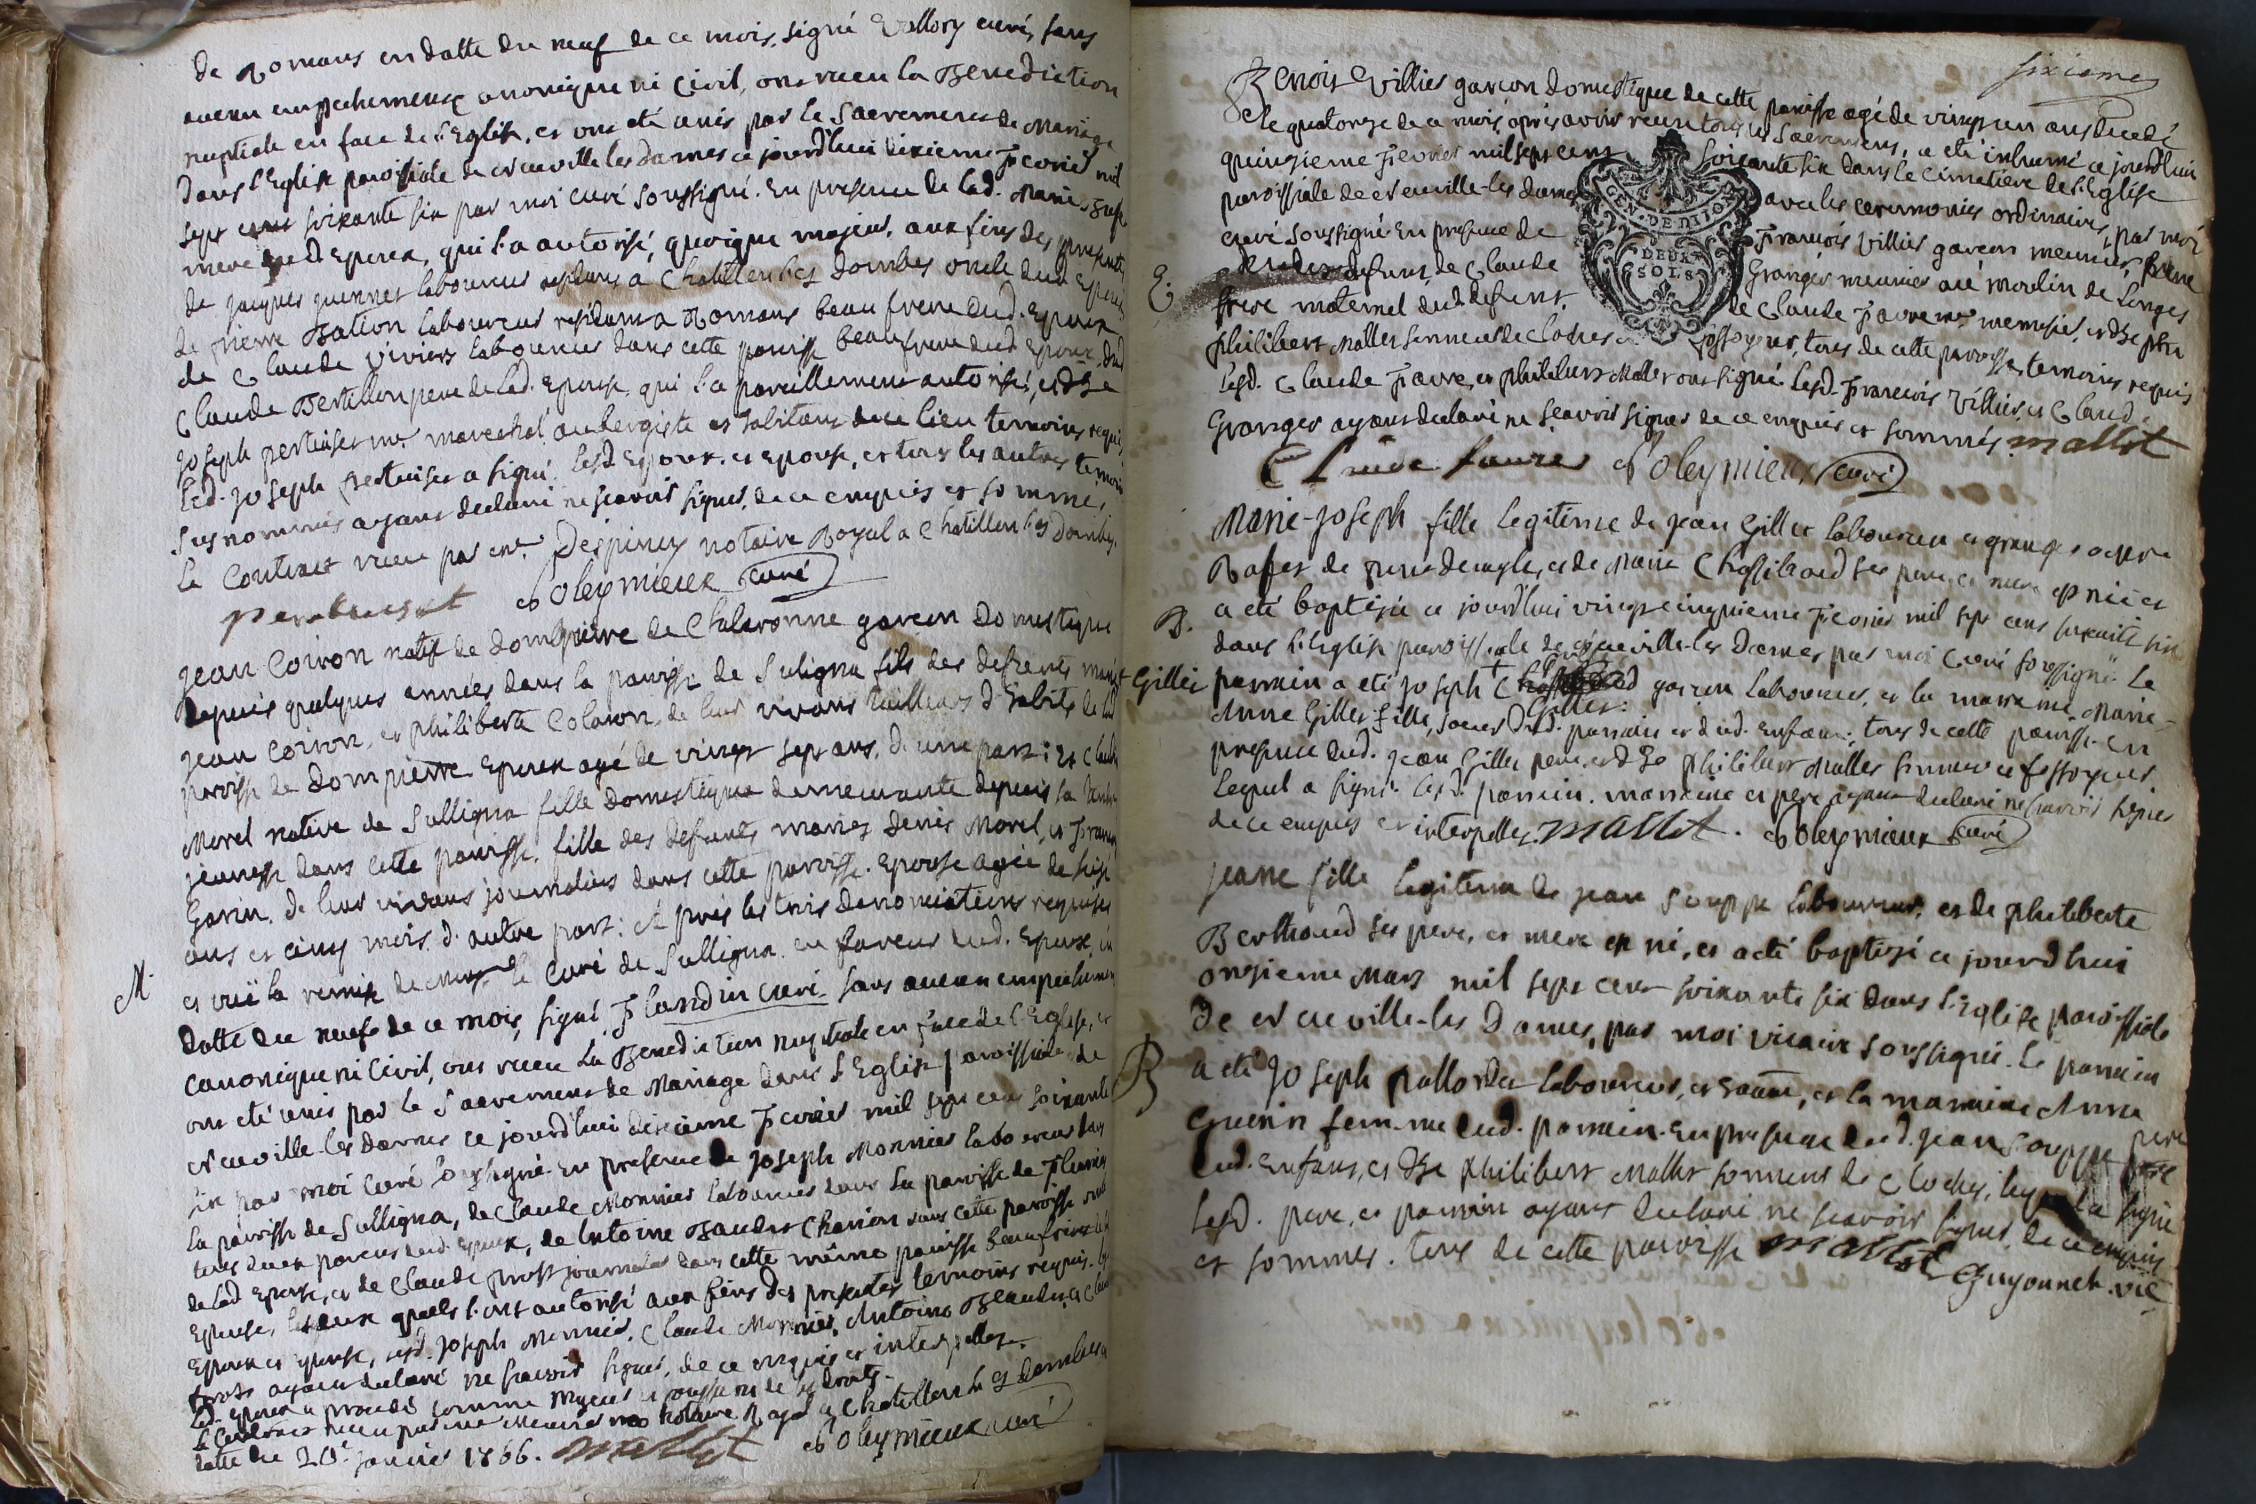 de Romans en datte du neuf de ce mois, signé Vallory curé, sans
aucun empechement canonique ni Civil, ont receu la Benediction
nuptiale en face de l'Eglise, et ont été unis par le Sacrement de Mariage
dans l'Eglise paroissiale de cruville les dames ce jourd'hui dixieme Fevrier mil
sept cent soixante six par moi curé soussigné. En presence de lad. Marie
mere dud Epoux, qui l'a autorisé, quoique majeur, aux fins des presentes
de jacques laboureur residant a Chatillon les dombes oncle dud Epoux
de pierre Bation laboureur residant a Romans beau frere dud. Epoux
de Claude Viviers laboureur dans cette paroisse beaufrere dud Epoux, dud
Claude Bertillon pere de lad. Epouse, qui l'a pareillement autorisé, et de
Joseph pertuiset me. marechal aubergiste et habitant de ce lieu temoins requis
led. Joseph pertuiset a signé, lesd Epoux, et Epouse, et tous les autres temoins
susnommés ayant declaré ne scavoir signer, de ce enquis et sommés,
le Contract receu par me. Despiney notaire Royal a Chatillon les Dombes.
pertuiset Soleymieux curé
Jean Coiron natif de dompierre de Chalaronne garcon Domestique
Depuis quelques années dans la paroisse de Suligna fils des defunts mariés
Jean Coiron, et philiberte Colason, de leur vivant tailleurs d'habits de lad
paroisse de Dompierre Epoux agé de vingt sept ans, d'une part: et Claudine
Morel native de Sulligna fille domestique demeurante depuis sa tendre
jeunesse dans cette paroisse, fille des defunts mariés denis Morel, et
Garin, de leur vivant journaliers dans cette paroisse. Epouse agée de
ans et cinq mois, d'autre part: Aprés les trois denonciations requises
M.
et vuë la remise de le Curé de Sulligna en faveur dud. Epoux, en
datte du neuf de ce mois, signé Flandin curé sans aucun empechement
canonique ni Civil, ont receu la Benediction nuptiale en face de l'Eglise, et
ont été unis par le Sacrement de Mariage dans l'Eglise paroissiale de
cruville-les dames ce jourd'hui dixieme Fevrier mil sept cent soixante
six par moi curé soussigné. En presence de Joseph Monnier laboureur dans
la paroisse de Sulligna, de Claude Monnier laboureur dans la paroisse de
tous deux parens dud. Epoux, de Antoine Beaudet Charion dans cette paroisse
de lad Epouse, et de Claude prost journalier dans cette même paroisse beaufrere
Epouse, lesquels l'ont autorisé aux fins des presentes temoins requis.
Epoux et Epouse, lesd. Joseph Monnier, Claude Monnier, Antoine Beaudet, et Claude
prost ayant declaré ne scavoir signer, de ce enquis et interpellés.
Led. Epoux a procedé comme majeur et de ses droits.
Le Contract receu par me notaire Royal a Chatillon les dombes
datte du 20e. janvier 1766. mallet Soleymieux curé
sixieme
Benoit Villier garcon domestique de cette paroisse agé de vingt un ans decedé
le quatorze de ce mois, aprés avoir receu tous les Sacremens, a été inhumé ce jourd'hui
quinzieme Fevrier mil sept cent soixante six dans le Cimetiere de l'Eglise
paroissiale de cruville-les dames avec les ceremonies ordinaires, par moi
curé soussigné En presence de François Villier garcon meunier, frere
defunt, de Claude Granger meunier au moulin de Longes
E.
frere maternel dud. defunt. de Claude Favre me. menusier, et de phi
philibert Mallet sonneur de Cloches et fossoyeur, tous de cette paroisse, temoins requis
lesd. Claude Favre, et philibert Mallet ont signé lesd. François Villier, et Claude
Granger ayant declaré ne scavoir signer de ce enquis et sommés. mallet
Claude faure Soleymieux curé
GEN. DE DIJON
DEUX
SOLS
Marie-Joseph fille legitime de jean Gillet laboureur et granger au
Rafet de et de Marie Chossibaud ses pere, et mere est née et
a été baptisée ce jourd'hui vingt cinquieme Fevrier mil sept cent soixante six
B.
dans l'Eglise paroissiale de cruville-les Dames par moi Curé soussigné. Le
+ Gillet parrain a été Joseph + garcon laboureur, et la marreine Marie-
Gillet:
Anne Gillet fille, soeur dud. parrain et dud. enfant; tous de cette paroisse. En
presence dud. jean Gillet pere, et de philibert Mallet sonneur et fossoyeur
lequel a signé. lesd. parrain, marreine et pere ayant declaré ne scavoir signer
de ce enquis et interpellés. mallet. Soleymieux curé
Jeanne fille legitime de jean Souppe laboureur, et de philiberte
Berthoud ses pere, et mere est né, et a été baptizé ce jourd'hui
onzieme Mars mil sept cent soixante six dans l'Eglise paroissiale
De cruville-les Dames, par moi vicaire soussigné. Le parrain
B
a été Joseph pallordet laboureur, et la marraine Anne
Guerin femme dud. parrain. En presence dud. jean Souppe pere
dud. Enfant, et de philibert Mallet sonneur de Cloches, lequel a signé
lesd. pere, et parrain ayant declaré ne scavoir signer de ce enquis
et sommés. tous de cette paroisse mallet Guyonnet vic